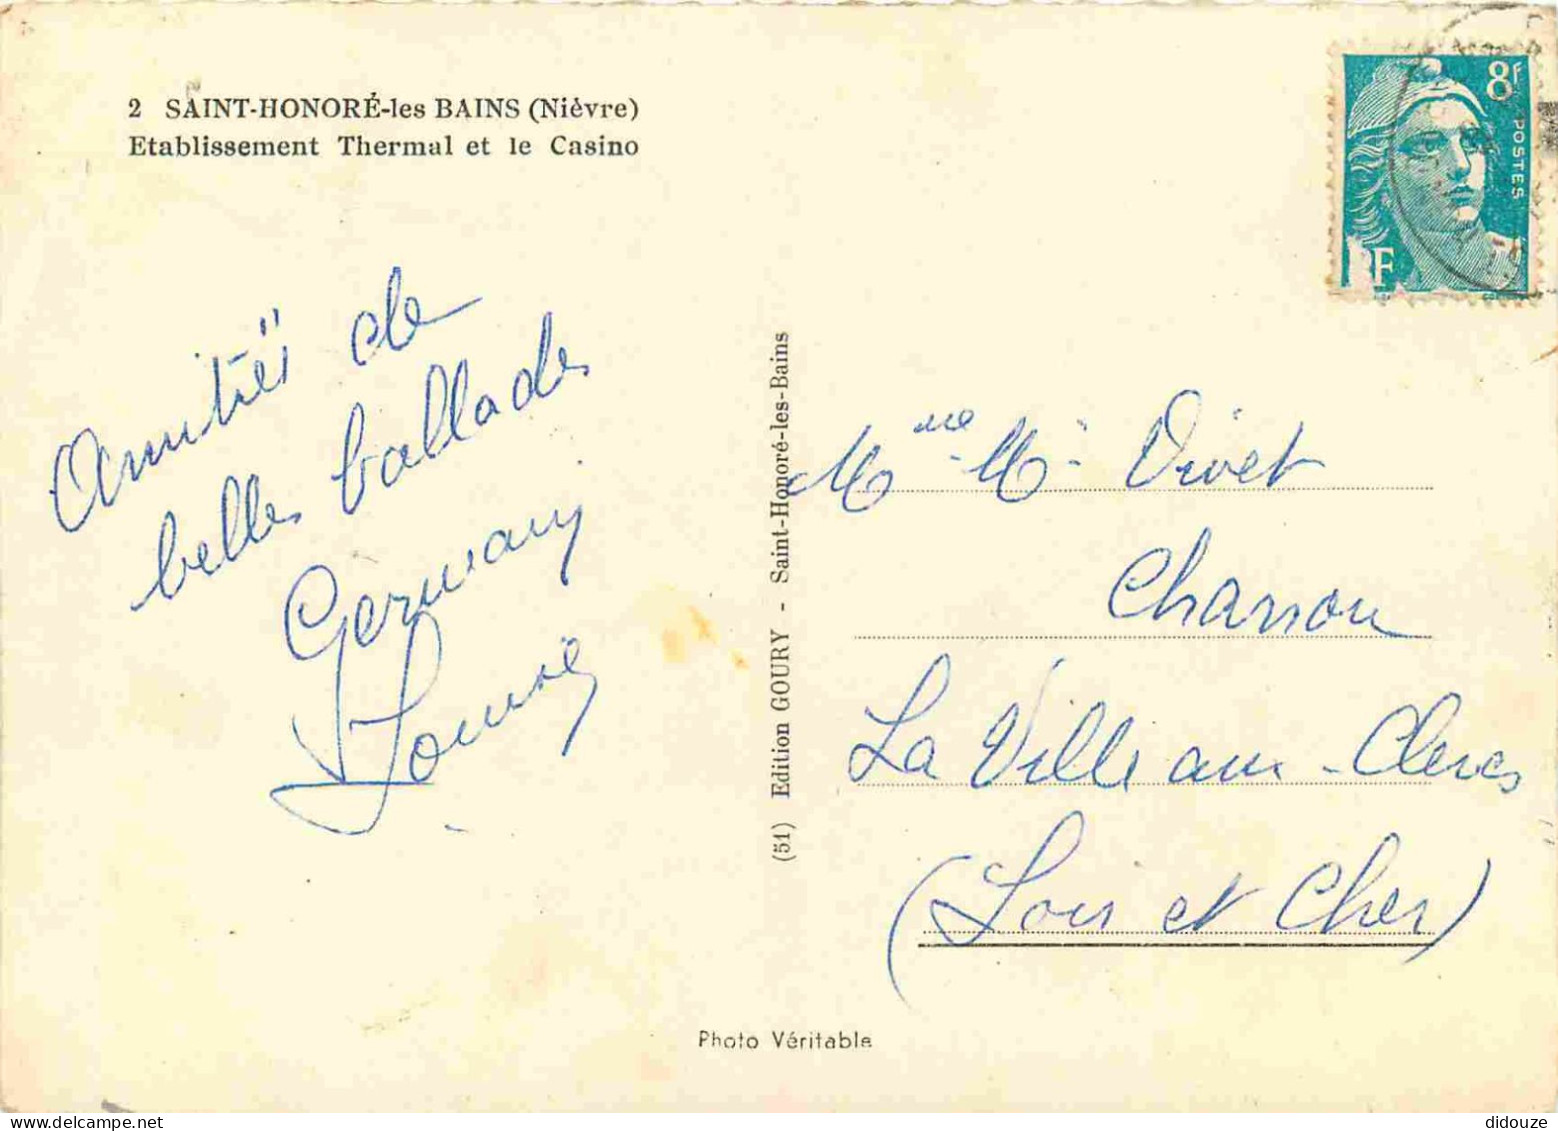 2 SAINT-HONORÉ-les BAINS (Nièvre)
Etablissement Thermal et le Casino
Amitiés de
belles ballades
Germany
Louise
(51) Edition GOURY - Saint-Honoré-les-Bains
8f
POSTES
RF
Mme Mr Divet
Charron
La Ville aux Clercs
(Loir et Cher)
Photo Véritable
didouze